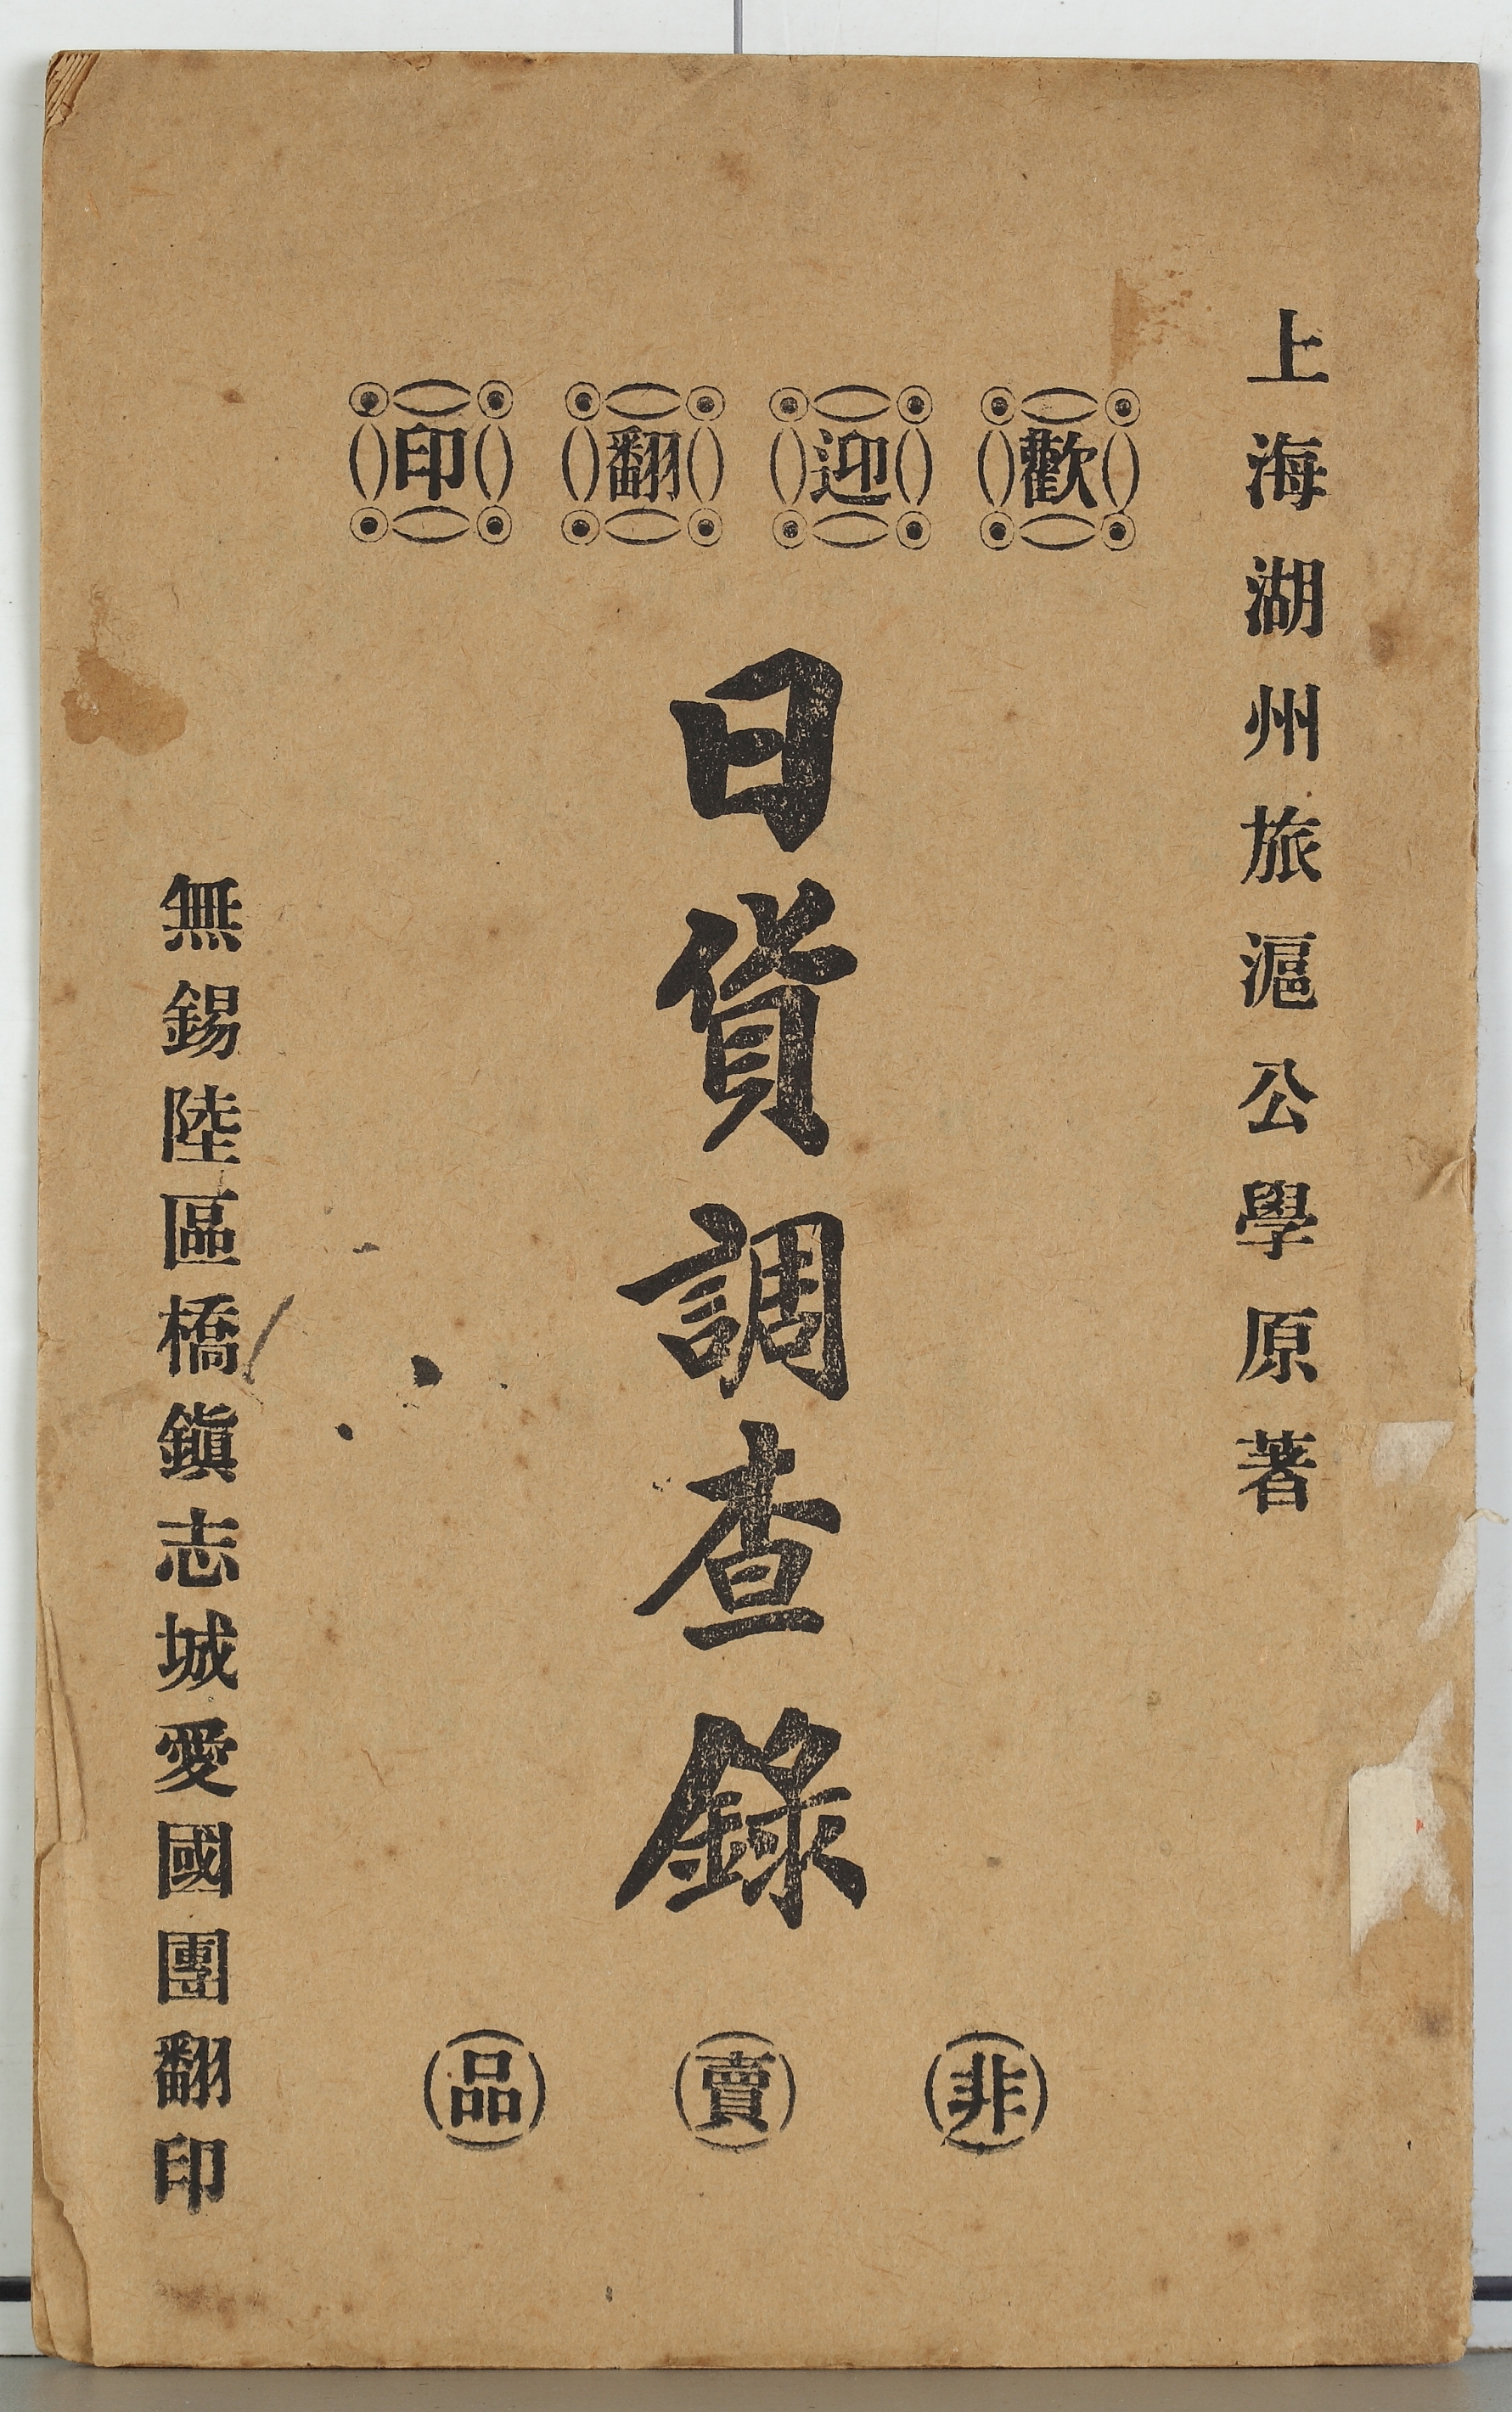 上海湖州旅滬公學原著
歡迎翻印
日貨調查錄
非賣品
無錫陸區橋鎭志城愛國團翻印